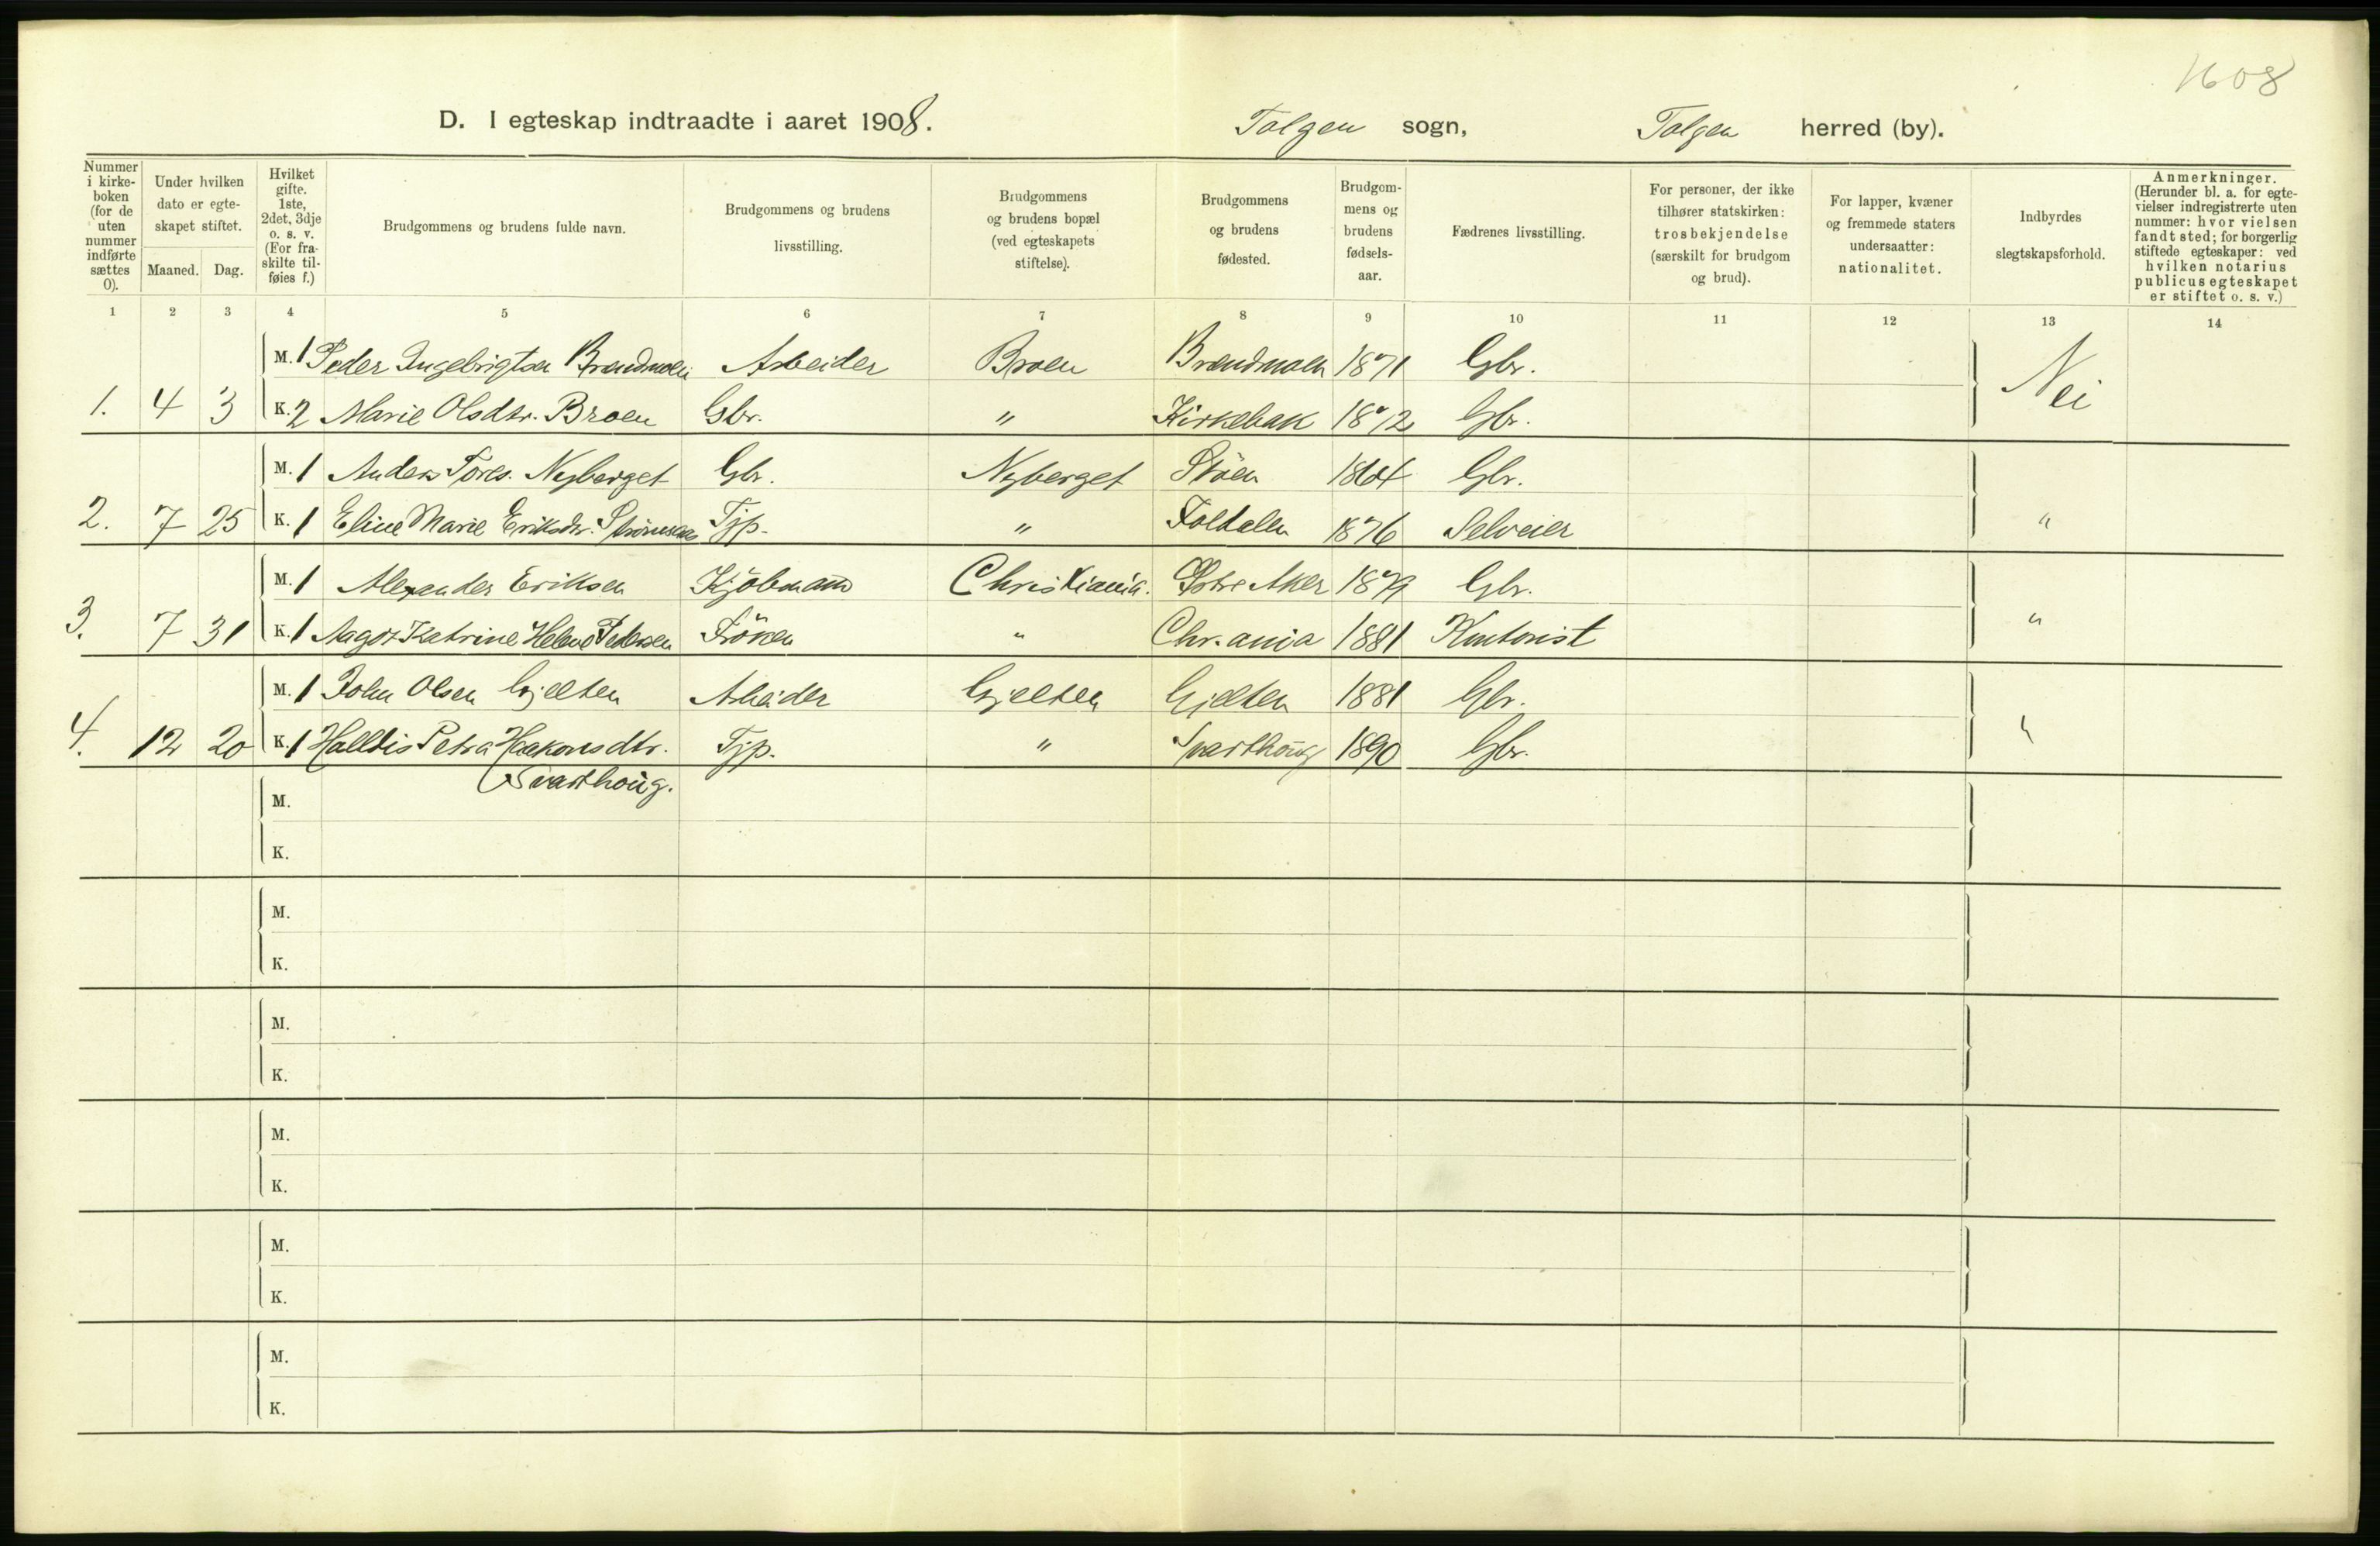 1608
D. I egteskap indtraadte i aaret 1908. Tolgen sogn, Tolgen herred (by).
Nummer i kirke- boken (for de uten nummer indførte sættes 0).
Under hvilken dato er egte- skapet stiftet.
Maaned. Dag.
Hvilket gifte. 1ste, 2det, 3dje o. s. v. (For fra- skilte til- føies f.)
Brudgommens og brudens fulde navn.
Brudgommens og brudens livsstilling.
Brudgommens og brudens bopæl (ved egteskapets stiftelse).
Brudgommens og brudens fødested.
Brudgom- mens og brudens fødsels- aar.
Fædrenes livsstilling.
For personer, der ikke tilhører statskirken: trosbekjendelse (særskilt for brudgom og brud).
For lapper, kvæner og fremmede staters undersaatter: nationalitet.
Indbyrdes slegtskapsforhold.
Anmerkninger. (Herunder bl. a. for egte- vielser indregistrerte uten nummer: hvor vielsen fandt sted; for borgerlig stiftede egteskaper: ved hvilken notarius publicus egteskapet er stiftet o. s. v.)
1 2 3 4 5 6 7 8 9 10 11 12 13 14
M. 1 Peder Ingebrigtsen Brændmoen Arbeider Broen Brændmoen 1871 Gbr. Nei
1. 4 3 K. 2 Marie Olsdtr. Broen Gbr. " Kirkebak 1872 Gbr.
M. 1 Anders Tores. Nyberget Gbr. Nyberget Støen 1864 Gbr.
2. 7 25 K. 1 Eline Marie Eriksdr. Tjp. " Foldalen 1876 Selveier "
M. 1 Alexander Eriksen Kjöbmand Christiania. Østre Aker 1879 Gbr.
3. 7 31 K. 1 Aagot Katrine Helene Pedersen Fröken " Chr.ania 1881 Kontorist "
M. 1 John Olsen Gjelten Arbeider Gjelten Gjelten 1881 Gbr.
4. 12 20 K. 1 Halldis Petra Haakonsdtr. Tjp. " Svarthoug 1890 Gbr. "
Svarthoug.
M.
K.
M.
K.
M.
K.
M.
K.
M.
K.
M.
K.